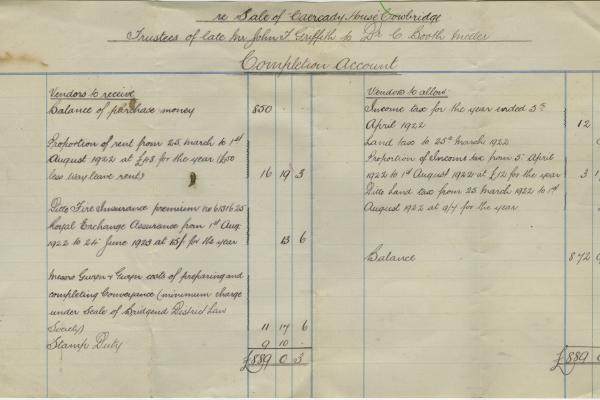 re Sale of Caercady House Cowbridge
Trustees of late Mr John T Griffith to Dr C Booth Meller
Completion Account
Vendors to receive
Balance of purchase money 850 . .
Proportion of rent from 25 March to 1st
August 1922 at £48 for the year (£50
less way leave rent) 16 19 3
Ditto Fire Insurance premium no 6131625
Royal Exchange Assurance from 1st Aug
1922 to 24 June 1923 at 15/- for the year 13 6
Messrs Gwyn & Gwyn costs of preparing and
completing Conveyance (minimum charge
under Scale of Bridgend District Law
Society) 11 17 6
Stamp Duty 9 10 .
£889 0 3
Vendors to allow
Income tax for the year ended 5th
April 1922 12
Land tax to 25th March 1922
Proportion of Income tax from 5 April
1922 to 1st August 1922 at £12 for the year 3
Ditto Land tax from 25 March 1922 to 1st
August 1922 at 9/4 for the year
Balance 872
£889